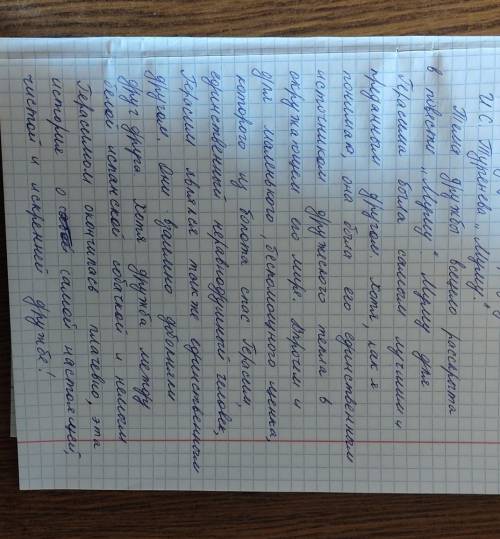 И. С. Тургенева „Муму."
Тема дружбы всецело раскрыта
в повести „Муму". Муму для
Герасима была самым лучшим и
преданным другом. Хотя, как я
понимаю, она была его единственным
источником дружеского тепла в
окружающем его мире. Впрочем и
для маленького, беспомощного щенка,
которого из болота спас Герасим,
единственный неравнодушный человек,
Герасим являлся также единственным
другом. Они взаимно добавляли
друг друга. Хотя дружба между
белой испанской собачкой и немым
Герасимом окончилась плачевно, эта
история о самой настоящей,
чистой и искренней дружбе!